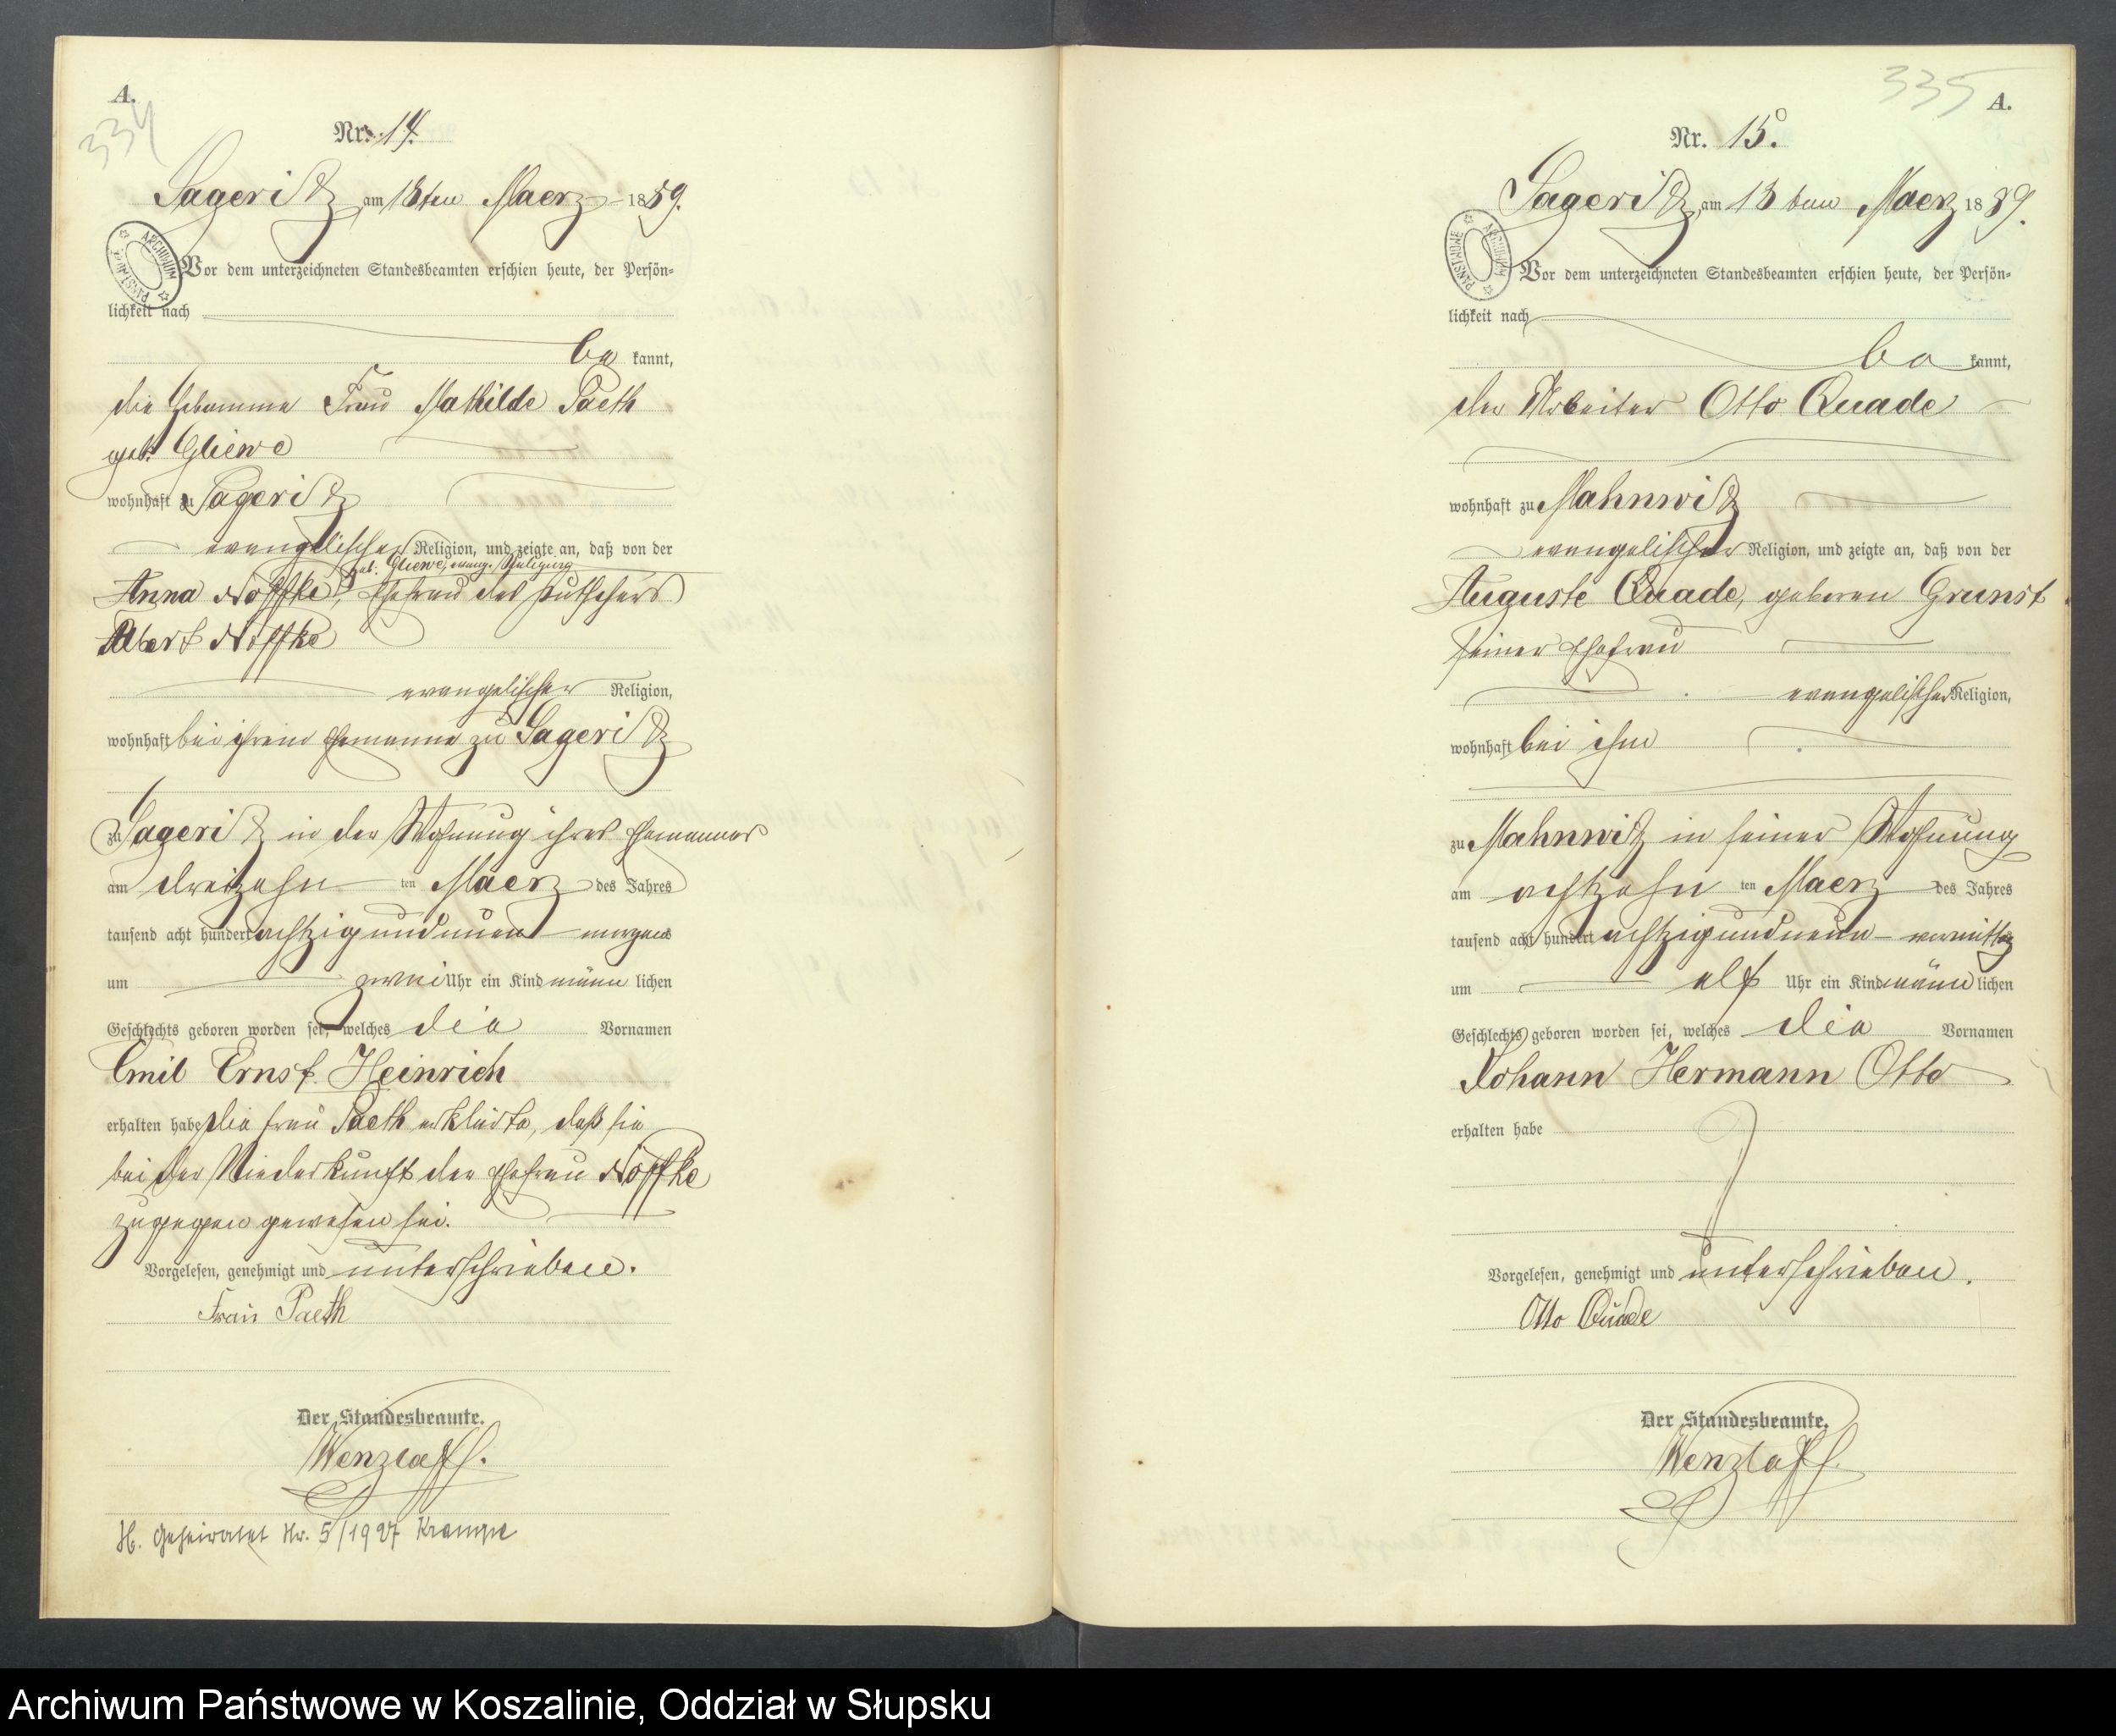 A.
334
Nr. 14.
Sageritz am 18ten Maerz 1889.
ARCHIWUM PAŃSTWOWE
Vor dem unterzeichneten Standesbeamten erschien heute, der Persön=
lichkeit nach
be kannt,
die Hebamme Frau Mathilde Paeth
geb. Gliewe
wohnhaft zu Sageritz
evangelischer Religion, und zeigte an, daß von der
geb. Gliewe, evang. Religion
Anna Noffke, Ehefrau des
Albert Noffke
evangelischer Religion,
wohnhaft bei ihrem Ehemanne zu Sageritz
zu Sageritz in der Wohnung ihres Ehemannes
am dreizehn ten Maerz des Jahres
tausend acht hundert achtzig und neun morgens
um zwei Uhr ein Kind männ lichen
Geschlechts geboren worden sei, welches die Vornamen
Emil Ernst Heinrich
erhalten habe die Frau Paeth erklärte, daß sie
bei der Niederkunft der Ehefrau Noffke
zugegen gewesen sei.
Vorgelesen, genehmigt und unterschrieben.
Frau Paeth
Der Standesbeamte.
Wenzlaff.
H. Geheiratet Nr. 5/1927
335
A.
Nr. 15.
Sageritz, am 18 ten Maerz 1889.
ARCHIWUM PAŃSTWOWE
Vor dem unterzeichneten Standesbeamten erschien heute, der Persön=
lichkeit nach
be kannt,
der Arbeiter Otto Quade
wohnhaft zu Mahnwitz
evangelischer Religion, und zeigte an, daß von der
Auguste Quade, geboren Grunst
seiner Ehefrau
evangelischer Religion,
wohnhaft bei ihm
zu Mahnwitz in seiner Wohnung
am achtzehn ten Maerz des Jahres
tausend acht hundert achtzig und neun vormittag
um elf Uhr ein Kind männ lichen
Geschlechts geboren worden sei, welches die Vornamen
Johann Hermann Otto
erhalten habe
Vorgelesen, genehmigt und unterschrieben.
Otto Quade
Der Standesbeamte.
Wenzlaff.
Archiwum Państwowe w Koszalinie, Oddział w Słupsku